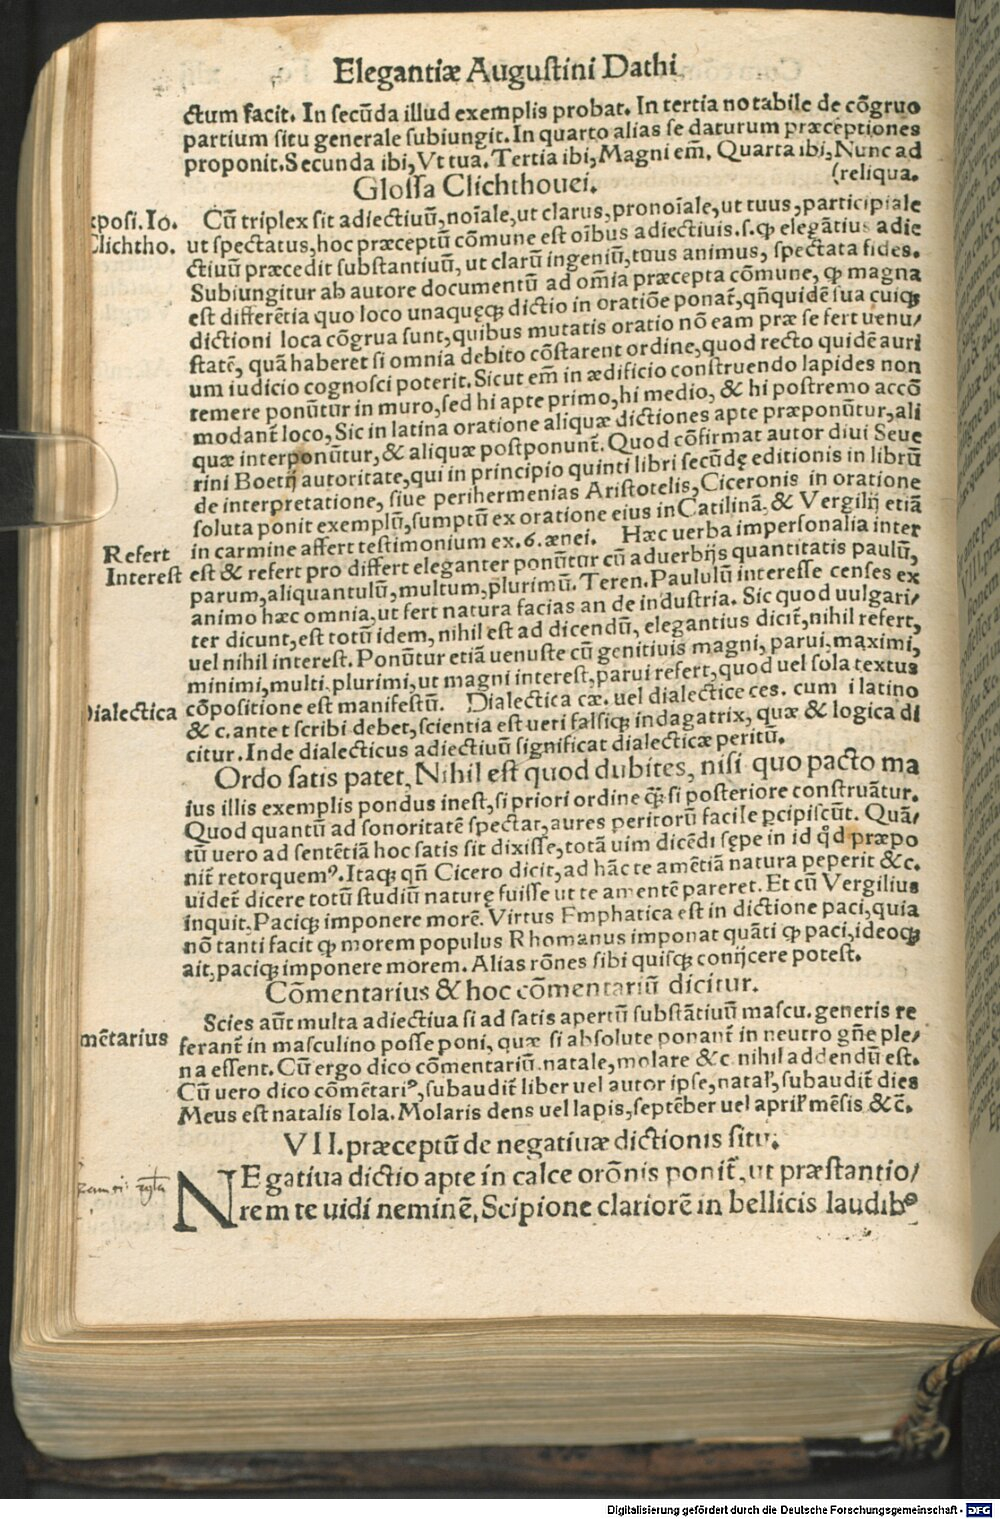 Elegantiæ Augustini Dathi
ctum facit. In secūda illud exemplis probat. In tertia notabile de cōgruo
partium situ generale subiungit. In quarto alias se daturum præceptiones
proponit. Secunda ibi, Vt tua. Tertia ibi, Magni em̄. Quarta ibi, Nunc ad
(reliqua.
Glossa Clichthouei.
xposi. Io.
Clichtho.
Cū triplex sit adiectiuū, noīale, ut clarus, pronoīale, ut tuus, participiale
ut spectatus, hoc præceptū cōmune est oībus adiectiuis .s. ꝙ elegātius adie
ctiuū præcedit substantiuū, ut clarū ingeniū, tuus animus, spectata fides.
Subiungitur ab autore documentū ad om̄ia præcepta cōmune, ꝙ magna
est differētia quo loco unaquęqꝫ dictio in oratiōe ponat̄, qn̄quidē sua cuiqꝫ
dictioni loca cōgrua sunt, quibus mutatis oratio nō eam præ se fert uenu/
statē, quā haberet si omnia debito cōstarent ordine, quod recto quidē auri
um iudicio cognosci poterit. Sicut em̄ in ædificio construendo lapides non
temere ponūtur in muro, sed hi apte primo, hi medio, & hi postremo accō
modant̄ loco, Sic in latina oratione aliquæ dictiones apte præponūtur, ali
quæ interponūtur, & aliquæ postponunt̄. Quod cōfirmat autor diui Seue
rini Boetij autoritate, qui in principio quinti libri secūdę editionis in librū
de interpretatione, siue perihermenias Aristotelis, Ciceronis in oratione
soluta ponit exemplū, sumptū ex oratione eius in Catilinā, & Vergilij etiā
in carmine affert testimonium ex .6. ænei. Hæc uerba impersonalia inter
Refert
Interest
est & refert pro differt eleganter ponūtur cū aduerbijs quantitatis paulū,
parum, aliquantulū, multum, plurimū. Teren. Paululū interesse censes ex
animo hæc omnia, ut fert natura facias an de industria. Sic quod uulgari/
ter dicunt, est totū idem, nihil est ad dicendū, elegantius dicit̄, nihil refert,
uel nihil interest. Ponūtur etiā uenuste cū genitiuis magni, parui, maximi,
minimi, multi, plurimi, ut magni interest, parui refert, quod uel sola textus
Dialectica
cōpositione est manifestū. Dialectica cæ. uel dialectice ces. cum i latino
& c. ante t scribi debet, scientia est ueri falsiqꝫ indagatrix, quæ & logica di
citur. Inde dialecticus adiectiuū significat dialecticæ peritū.
Ordo satis patet, Nihil est quod dubites, nisi quo pacto ma
ius illis exemplis pondus inest, si priori ordine q̄ꝫ si posteriore construātur.
Quod quantū ad sonoritatē spectat, aures peritorū facile ꝑcipiscūt. Quā/
tū uero ad sentētiā hoc satis sit dixisse, totā uim dicēdi sępe in id qđ præpo
nit̄ retorquemꝰ. Itaqꝫ qn̄ Cicero dicit, ad hāc te amētiā natura peperit &c.
uidet̄ dicere totū studiū naturę fuisse ut te amentē pareret. Et cū Vergilius
inquit, Paciqꝫ imponere morē. Virtus Emphatica est in dictione paci, quia
nō tanti facit ꝙ morem populus Rhomanus imponat quāti ꝙ paci, ideoqꝫ
ait, paciqꝫ imponere morem. Alias rōnes sibi quisqꝫ conijcere potest.
Cōmentarius & hoc cōmentariū dicitur.
mētarius
Scies aūt multa adiectiua si ad satis apertū substātiuū mascu. generis re
ferant̄ in masculino posse poni, quæ si absolute ponant̄ in neutro gn̄e ple/
na essent. Cū ergo dico cōmentariū, natale, molare &c. nihil addendū est.
Cū uero dico cōmētariꝰ, subaudit̄ liber uel autor ipse, natal̄, subaudit̄ dies
Meus est natalis Iola. Molaris dens uel lapis, septēber uel april̄ mēsis &c̄.
VII. præceptū de negatiuæ dictionis situ.
NEgatiua dictio apte in calce orōnis ponit̄, ut præstantio/
rem te uidi neminē, Scipione clariorē in bellicis laudibꝰ
Digitalisierung gefördert durch die Deutsche Forschungsgemeinschaft - DFG